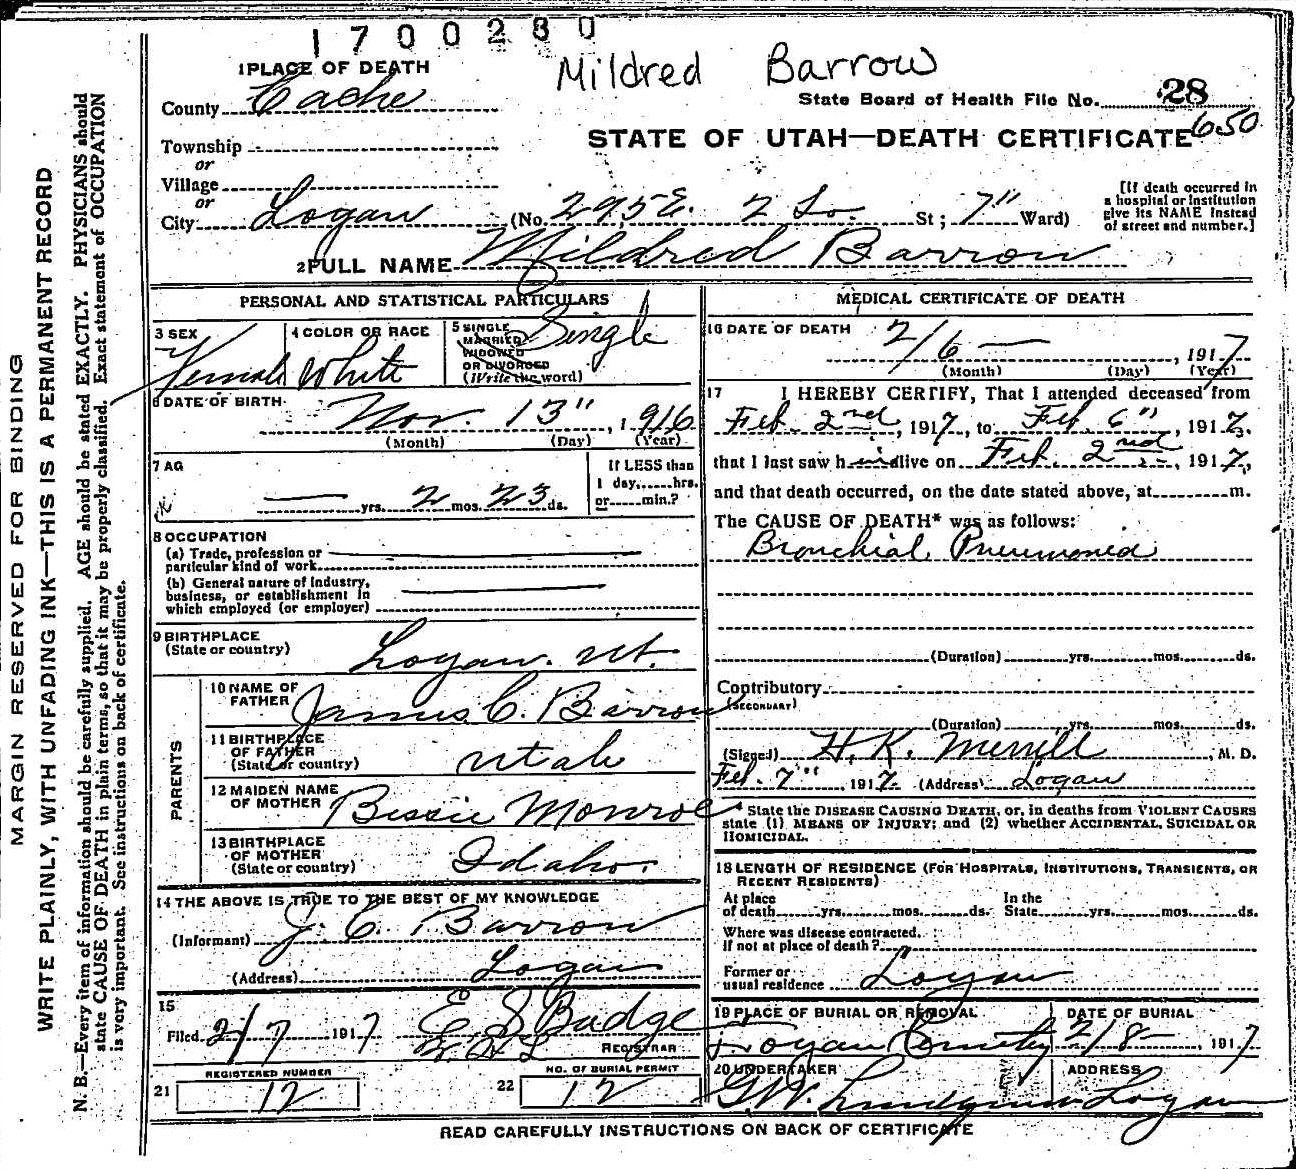 1700280
Mildred Barrow
1 PLACE OF DEATH
County Cache
State Board of Health File No. 28
650
STATE OF UTAH—DEATH CERTIFICATE
Township
or
Village
or
City Logan (No. 295 E. 2 So. St; 7" Ward)
[If death occurred in
a hospital or institution
give its NAME instead
of street and number.]
2 FULL NAME Mildred Barrow
PERSONAL AND STATISTICAL PARTICULARS
3 SEX
Female
4 COLOR OR RACE
White
5 SINGLE
MARRIED
WIDOWED
OR DIVORCED
(Write the word)
Single
6 DATE OF BIRTH
Nov. 13", 1916
(Month) (Day) (Year)
7 AG
— yrs. 2 mos. 23 ds.
If LESS than
1 day,.....hrs.
or.....min.?
8 OCCUPATION
(a) Trade, profession or
particular kind of work
(b) General nature of Industry,
business, or establishment in
which employed (or employer)
9 BIRTHPLACE
(State or country)
Logan. Ut.
PARENTS
10 NAME OF
FATHER
James C. Barrow
11 BIRTHPLACE
OF FATHER
(State or country)
Utah
12 MAIDEN NAME
OF MOTHER
Bessie Monroe
13 BIRTHPLACE
OF MOTHER
(State or country)
Idaho.
14 THE ABOVE IS TRUE TO THE BEST OF MY KNOWLEDGE
(Informant) J. C. Barrow
(Address) Logan
15
Filed 2/7 1917 E S Budge
REGISTRAR
REGISTERED NUMBER
21 12
NO. OF BURIAL PERMIT
22 12
MEDICAL CERTIFICATE OF DEATH
16 DATE OF DEATH
2/6 — , 1917
(Month) (Day) (Year)
17 I HEREBY CERTIFY, That I attended deceased from
Feb. 2nd, 1917, to Feb. 6", 1917,
that I last saw h alive on Feb. 2nd, 1917,
and that death occurred, on the date stated above, at m.
The CAUSE OF DEATH* was as follows:
Bronchial Pneumonia
(Duration) yrs. mos. ds.
Contributory
(SECONDARY)
(Duration) yrs. mos. ds.
(Signed) H. K. Merrill, M. D.
Feb. 7" 1917. (Address) Logan
* State the DISEASE CAUSING DEATH, or, in deaths from VIOLENT CAUSES
state (1) MEANS OF INJURY; and (2) whether ACCIDENTAL, SUICIDAL OR
HOMICIDAL.
18 LENGTH OF RESIDENCE (FOR HOSPITALS, INSTITUTIONS, TRANSIENTS, OR
RECENT RESIDENTS)
At place
of death yrs. mos. ds.
In the
State yrs. mos. ds.
Where was disease contracted.
if not at place of death?
Former or
usual residence Logan
19 PLACE OF BURIAL OR REMOVAL
Logan
DATE OF BURIAL
2/8 — , 1917
20 UNDERTAKER
G.W. Lindquist
ADDRESS
Logan
READ CAREFULLY INSTRUCTIONS ON BACK OF CERTIFICATE
MARGIN RESERVED FOR BINDING
WRITE PLAINLY, WITH UNFADING INK—THIS IS A PERMANENT RECORD
N. B.—Every item of information should be carefully supplied. AGE should be stated EXACTLY. PHYSICIANS should
state CAUSE OF DEATH in plain terms, so that it may be properly classified. Exact statement of OCCUPATION
is very important. See instructions on back of certificate.